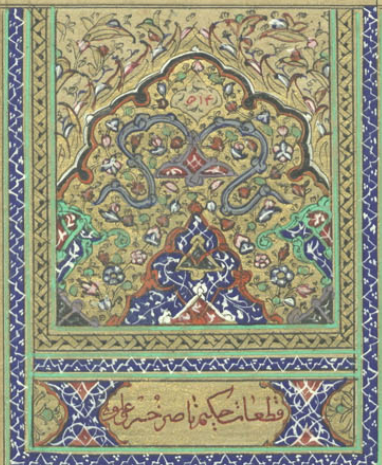 قطعات حکیم ناصر خسرو علوی